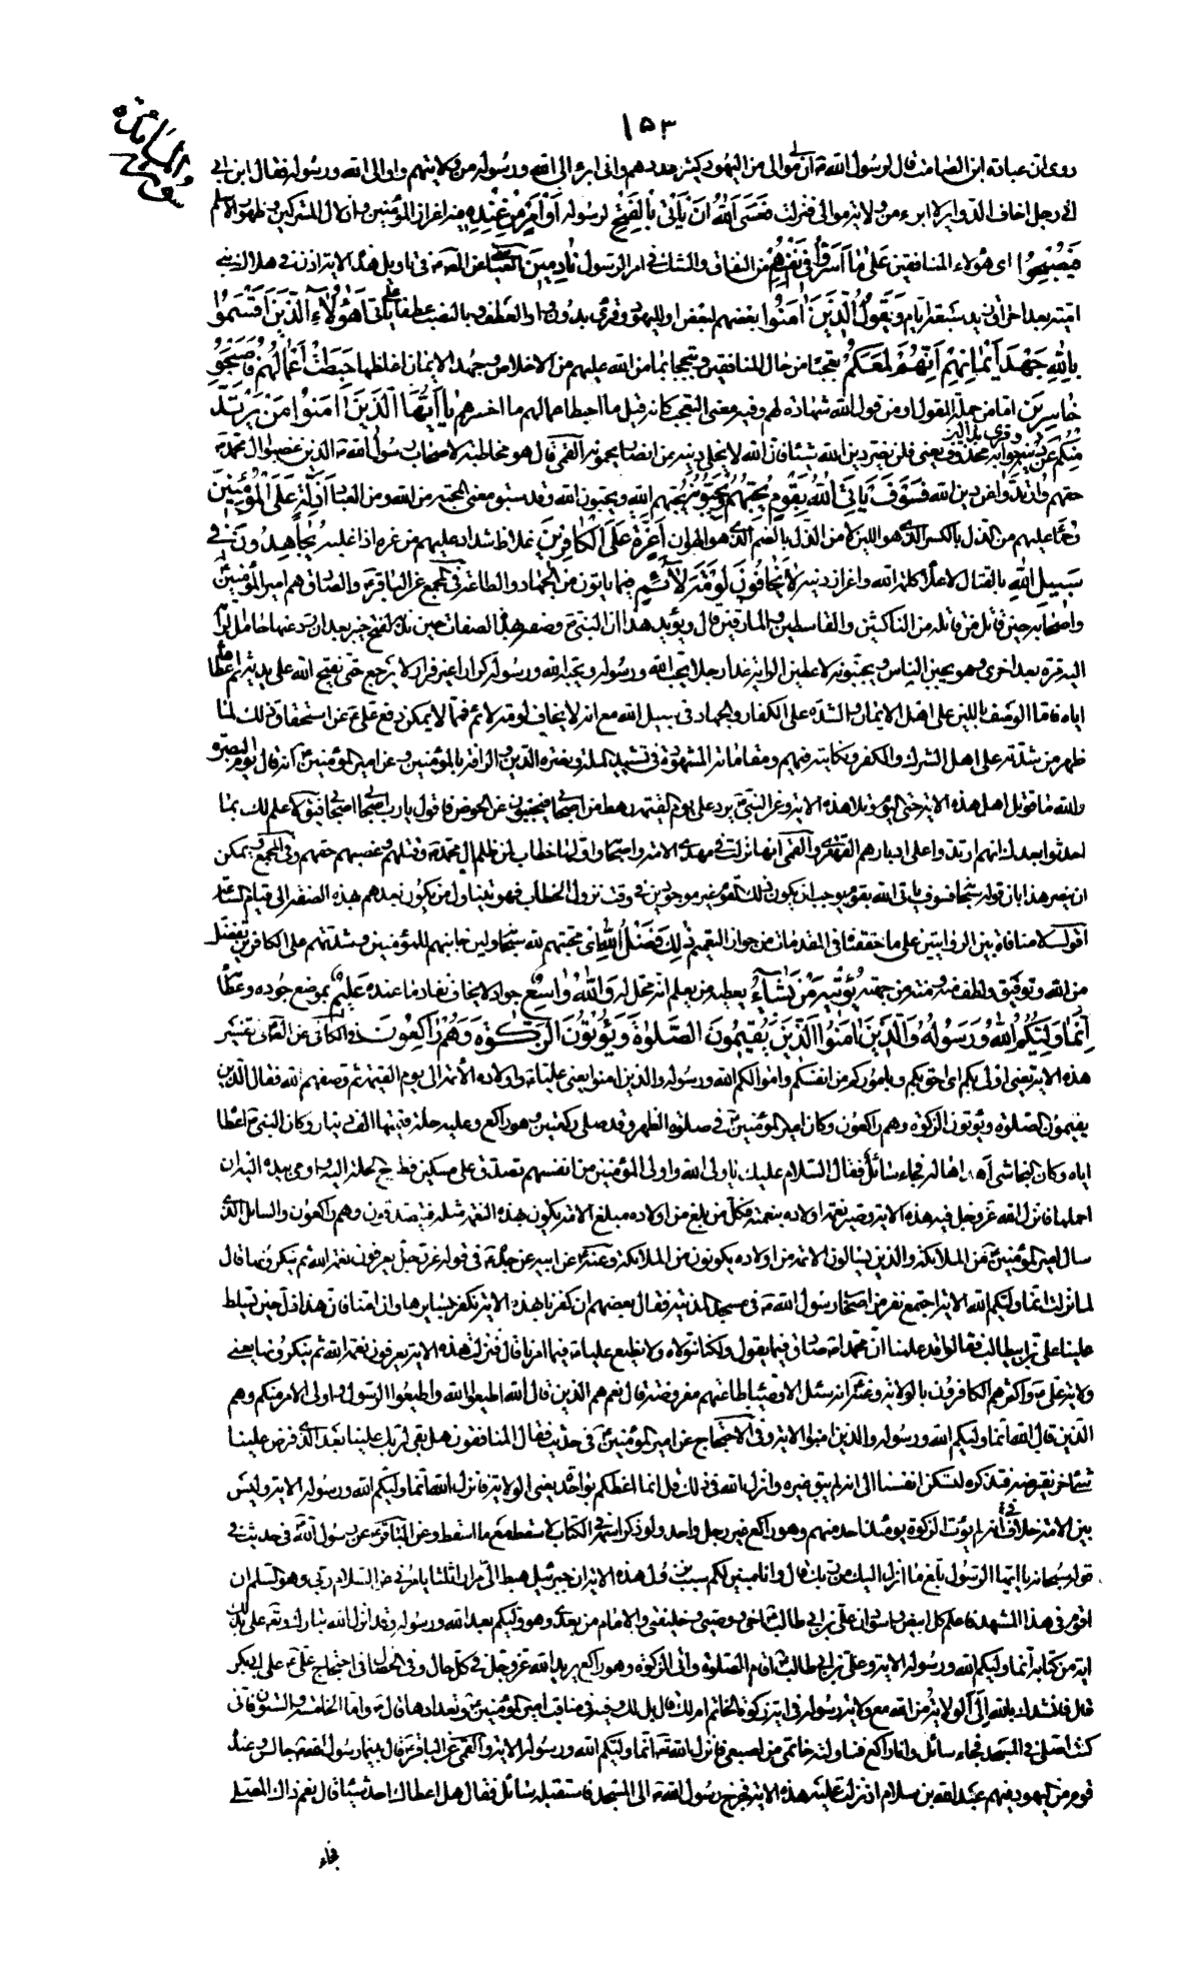 ١٥٣
سورة المائدة
روى ان عبادة ابن الصامت قال لرسول الله ص ان لى موالى من اليهود كثير عددهم وانى ابرء الى الله ورسوله من ولايتهم واوالى الله ورسوله فقال ابن ابى
انى رجل اخاف الدوائر لا ابرء من ولاية موالى فنزلت فَعَسَى اللّٰهُ اَنْ يَأْتِىَ بِالْفَتْحِ لرسوله اَوْ اَمْرٍ مِنْ عِنْدِهِ فيه اعزاز المؤمنين واذلال المشركين وظهور الاسلام
فَيُصْبِحُوا اى هؤلاء المنافقين عَلىٰ مَا اَسَرُّوا فى اَنْفُسِهِمْ من النفاق والشك فى امر الرسول نٰادِمِينَ العياشى عن الصادق ع فى تاويل هذه الاية اذن فى هلاك بنى
امية بعد احراق زيد سبعة ايام وَيَقُولُ الَّذِينَ اٰمَنُوا بعضهم لبعض او لليهود وقرئ بدون واو العطف وبالنصب عطفا على يأتى اَهٰؤُلاٰءِ الَّذِينَ اَقْسَمُوا
بِاللّٰهِ جَهْدَ اَيْمٰانِهِمْ اِنَّهُمْ لَمَعَكُمْ تعجبا من حال المنافقين وتبجحا بما من الله عليهم من الاخلاص وجهد الايمان اغلظها حَبِطَتْ اَعْمٰالُهُمْ فَاَصْبَحُوا
خٰاسِرِينَ اما من جملة المقول او من قول الله شهادة لهم وفيه معنى التعجب كانه قيل ما احبط اعمالهم ما اخسرهم يٰا اَيُّهَا الَّذِينَ اٰمَنُوا مَنْ يَرْتَدَّ
مِنْكُمْ عَنْ دِينِهِ جوابه محذوف يعنى فلن يضر دين الله شيئا فان الله لا يخلى دينه من انصار يحمونه القمى قال هو مخاطبة لاصحاب رسول الله ص الذين غصبوا ال محمد ص
حقهم وارتدوا عن دين الله فَسَوْفَ يَاْتِى اللّٰهُ بِقَوْمٍ يُحِبُّهُمْ وَيُحِبُّونَهُ يحبهم الله ويحبون الله وقد سبق معنى المحبة من الله ومن العباد اَذِلَّةٍ عَلَى الْمُؤْمِنِينَ
رحماء عليهم من الذل بالكسر الذى هو اللين لا من الذل بالضم الذى هو الهوان اَعِزَّةٍ عَلَى الْكٰافِرِينَ غلاظ شداد عليهم من عزه اذا غلبه يُجٰاهِدُونَ فى
سَبِيلِ اللّٰهِ بالقتال لاعلاء كلمة الله واعزاز دينه وَلاٰ يَخٰافُونَ لَوْمَةَ لاٰئِمٍ فيما ياتون من الجهاد والطاعة فى المجمع عن الباقر ع والصادق ع هم امير المؤمنين ع
واصحابه حين قاتل من قاتله من الناكثين والقاسطين والمارقين قال ويؤيد هذا ان النبى ص وصفه بهذه الصفات حين ندبه لفتح خيبر بعد ان رد عنها حامل الراية
اليه مرة بعد اخرى وهو يجبن الناس ويجبنونه لاعطين الراية غدا رجلا يحب الله ورسوله ويحبه الله ورسوله كرارا غير فرار لا يرجع حتى يفتح الله على يديه ثم اعطاها
اياه فاما الوصف باللين على اهل الايمان والشدة على الكفار والجهاد فى سبيل الله مع انه لا يخاف لومة لائم فمما لا يمكن دفع على ع عن استحقاق ذلك لما
ظهر من شدته على اهل الشرك والكفر ونكايته فيهم ومقاماته المشهورة فى تشييد الملة ونصرة الدين والرافة بالمؤمنين وعن امير المؤمنين ع انه قال يوم البصرة
والله ما قوتل اهل هذه الاية حتى اليوم وتلا هذه الاية وعن النبى ص يرد على يوم القيمة رهط من اصحابى فيحلؤن عن الحوض فاقول يا رب اصحابى اصحابى فيق انك لا علم لك بما
احدثوا بعدك انهم ارتدوا على ادبارهم القهقرى والقمى انها نزلت فى مهدى الامة واصحابه واولها خطاب لمن ظلم ال محمد ص وقتلهم وغصبهم حقهم وفى المجمع ويمكن
ان ينصر هذا بان قوله سبحانه فسوف ياتى الله بقوم يوجب ان يكون ذلك القوم غير موجودين فى وقت نزول الخطاب فهو يتناول من يكون بعدهم بهذه الصفة الى قيام الساعة
اقول لا منافاة بين الروايتين على ما حققناه فى المقدمات من جواز التعميم ذٰلِكَ فَضْلُ اللّٰهِ اى محبتهم لله سبحانه ولين جانبهم للمؤمنين وشدتهم على الكافرين تفضل
من الله وتوفيق ولطف منه ومنة من جهته يُؤْتِيهِ مَنْ يَشٰاءُ يعطيه من يعلم انه محل له وَاللّٰهُ وٰاسِعٌ جواد لا يخاف نفاد ما عنده عَلِيمٌ بموضع جوده وعطائه
اِنَّمٰا وَلِيُّكُمُ اللّٰهُ وَرَسُولُهُ وَالَّذِينَ اٰمَنُوا الَّذِينَ يُقِيمُونَ الصَّلٰوةَ وَيُؤْتُونَ الزَّكٰوةَ وَهُمْ رٰاكِعُونَ فى الكافى عن الصادق ع فى تفسير
هذه الاية يعنى اولى بكم اى احق بكم وباموركم من انفسكم واموالكم الله ورسوله والذين امنوا يعنى عليا ع واولاده الائمة الى يوم القيمة ثم وصفهم الله فقال الذين
يقيمون الصلوة ويؤتون الزكوة وهم راكعون وكان امير المؤمنين ع فى صلوة الظهر وقد صلى ركعتين وهو راكع وعليه حلة قيمتها الف دينار وكان النبى ص اعطاها
اياه وكان النجاشى اهداها له فجاء سائل فقال السلام عليك يا ولى الله واولى المؤمنين من انفسهم تصدق على مسكين فطرح الحلة اليه واومى بيده اليه ان
احملها فانزل الله عز وجل فيه هذه الاية وصير نعمة اولاده بنعمته فكل من بلغ من اولاده مبلغ الامامة يكون بهذه النعمة مثله فيتصدقون وهم راكعون والسائل الذى
سال امير المؤمنين ع من الملائكة والذين يسالون الائمة من اولاده يكونون من الملائكة وعنه ع عن ابيه عن جده ع فى قوله عز وجل يعرفون نعمة الله ثم ينكرونها قال
لما نزلت انما وليكم الله الاية اجتمع نفر من اصحاب رسول الله ص فى مسجد المدينة فقال بعضهم ان كفرنا بهذه الاية نكفر بسايرها وان امنا فان هذا ذل حين يسلط
علينا على بن ابيطالب فقالوا قد علمنا ان محمدا ص صادق فيما يقول ولكنا نتولاه ولا نطيع عليا ع فيما امرنا قال فنزلت هذه الاية يعرفون نعمة الله ثم ينكرونها يعنى
ولاية على ع واكثرهم الكافرون بالولاية وعنه ع انه سئل الاوصياء طاعتهم مفروضة قال نعم هم الذين قال الله اطيعوا الله واطيعوا الرسول واولى الامر منكم وهم
الذين قال الله انما وليكم الله ورسوله والذين امنوا الاية وفى الاحتجاج عن امير المؤمنين ع فى حديث فقال المنافقون هل بقى لربك علينا بعد الذى فرض علينا
شئ اخر يفترضه فتذكره لتسكن انفسنا الى انه لم يبق غيره فانزل الله فى ذلك قل انما اعظكم بواحدة يعنى الولاية فانزل الله انما وليكم الله ورسوله الاية وليس
بين الامة خلاف فى انه لم يؤت الزكوة يومئذ احد منهم وهو راكع غير رجل واحد ولو ذكر اسمه فى الكتاب لاسقط مع ما اسقط وعن الباقر ع عن رسول الله ص فى حديث فى
قوله سبحانه يا ايها الرسول بلغ ما انزل اليك من ربك قال وانا مبين لكم سبب نزول هذه الاية ان جبرئيل هبط الى مرارا ثلثا يامرنى عن السلام ربى وهو السلم ان
اقوم فى هذا المشهد فاعلم كل ابيض واسود ان على بن ابى طالب اخى ووصيى وخليفتى والامام من بعدى وهو وليكم بعد الله ورسوله وقد انزل الله تبارك وتع على بذلك
اية من كتابه انما وليكم الله ورسوله الاية وعلى بن ابى طالب ع اقام الصلوة واتى الزكوة وهو راكع يريد الله عز وجل فى كل حال وفى الخصال فى احتجاج على ع على ابى بكر
قال فانشدك بالله الى الولاية من الله مع ولاية رسوله فى اية زكوة الخاتم ام لك قال بل لك وفيه فى مناقب امير المؤمنين ع وتعدادها قال ع واما الخامسة والستون فانى
كنت اصلى فى المسجد فجاء سائل وانا راكع فناولته خاتمى من اصبعى فانزل الله تعه انما وليكم الله ورسوله الاية والقمى عن الباقر ع قال بينما رسول الله ص جالس وعنده
قوم من اليهود فيهم عبد الله بن سلام اذ نزلت عليه هذه الاية فخرج رسول الله ص الى المسجد فاستقبله سائل فقال هل اعطاك احد شيئا قال نعم ذاك المصلى
فجاء